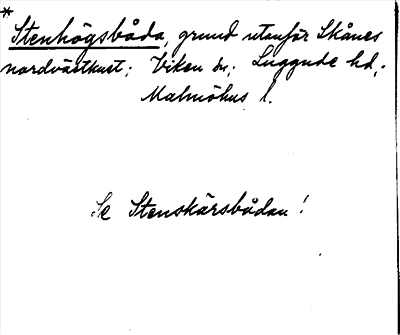 *
Stenhögsbåda, grund utanför Skånes
nordvästkust; Viken sn; Luggude hd,;
Malmöhus l.
Se Stenskärsbådan!